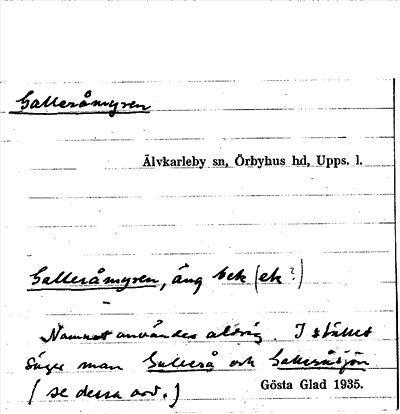 Galleråmyren
Älvkarleby sn, Örbyhus hd, Upps. l.
Galleråmyren, äng bek (ek?)
Namnet användes aldrig. I stället
säger man Gallerå och Galleråsjön
(se dessa ord.)
Gösta Glad 1935.